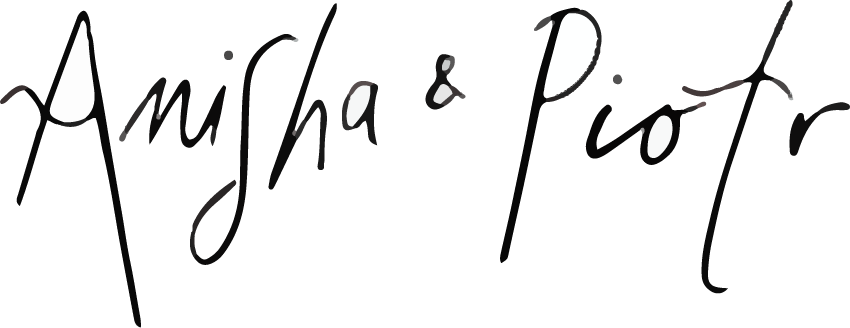 Anisha & Piotr